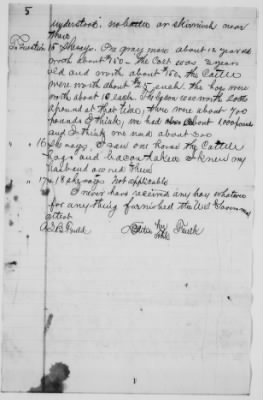 5
understood. no battle or skirmish near
there
To Question 15 she says. One gray mare about 12 year old
worth about $150. the Colt was 2 years
old and worth about $50, the Cattle
were worth about $25 each. the hogs were
worth about 10 each. the bacon was worth 20cts
a pound at that time, there were about 700
pounds I think, we had about 1,000 pounds
and I think we used about 300
" 16 she says, I saw one horse the Cattle
hogs and bacon taken I knew my
husband owned them
" 17 & 18 she says Not applicable
I never have received any pay whatever
for anything furnished the U.S. Government
attest
her
mark Faulk